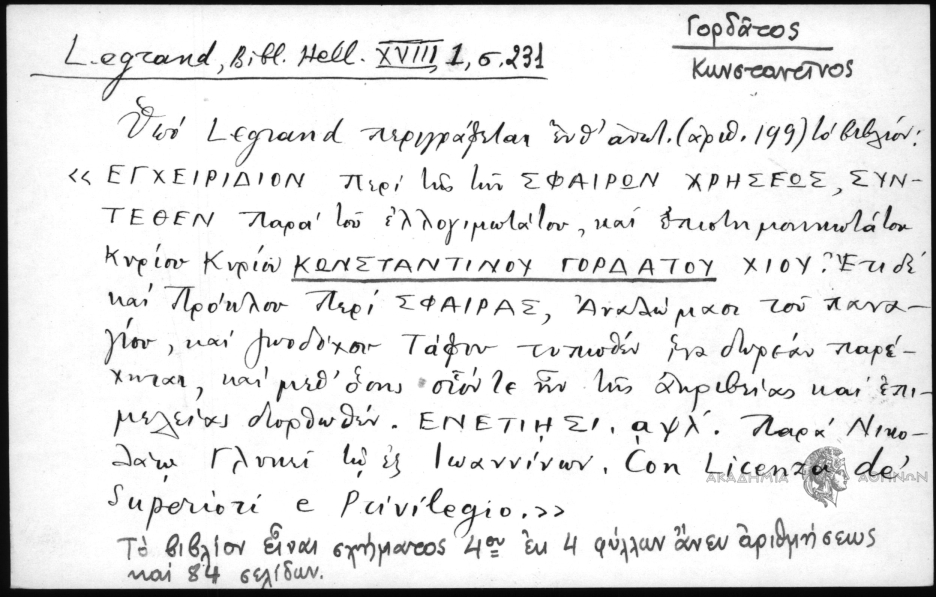 Γορδᾶτος
Κωνσταντῖνος
Legrand, Bibl. Hell. XVIII, 1, σ. 231
Ὑπό Legrand περιγράφεται ἐνθ' ἀνωτ. (ἀριθ. 199) τό βιβλίον:
«ΕΓΧΕΙΡΙΔΙΟΝ περί τῆς τῶν ΣΦΑΙΡΩΝ ΧΡΗΣΕΩΣ, ΣΥΝ-
ΤΕΘΕΝ παρά τοῦ ἐλλογιμωτάτου, καί ἐπιστημονικωτάτου
Κυρίου Κυρίου ΚΩΝΣΤΑΝΤΙΝΟΥ ΓΟΡΔΑΤΟΥ ΧΙΟΥ. Ἔτι δέ
καί Πρόκλου περί ΣΦΑΙΡΑΣ, Ἀναλώμασι τοῦ πανα-
γίου, καί ζωοδόχου Τάφου τυπωθέν ἵνα δωρεάν παρέ-
χηται, καί μεθ' ὅσης οἷόντε ἦν τῆς ἀκριβείας καί ἐπι-
μελείας διορθωθέν. ΕΝΕΤΙΗΣΙ, αψλ΄. Παρά Νικο-
λάῳ Γλυκεῖ τῷ ἐξ Ἰωαννίνων. Con Licenza de'
Superiori e Privilegio.»
Τό βιβλίον εἶναι σχήματος 4ου ἐκ 4 φύλλων ἄνευ ἀριθμήσεως
καί 84 σελίδων.
ΑΚΑΔΗΜΙΑ ΑΘΗΝΩΝ